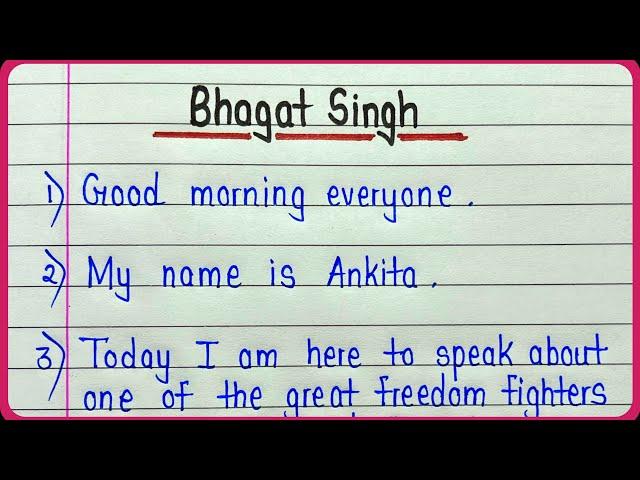 Bhagat Singh
1) Good morning everyone.
2) My name is Ankita.
3) Today I am here to speak about
one of the great freedom fighters